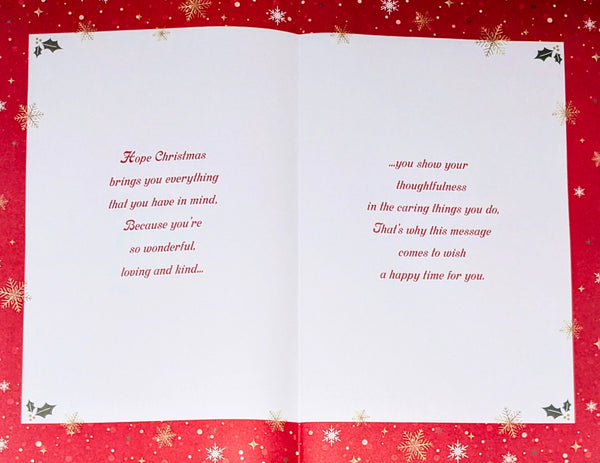 Hope Christmas
brings you everything
that you have in mind,
Because you're
so wonderful,
loving and kind...
...you show your
thoughtfulness
in the caring things you do,
That's why this message
comes to wish
a happy time for you.